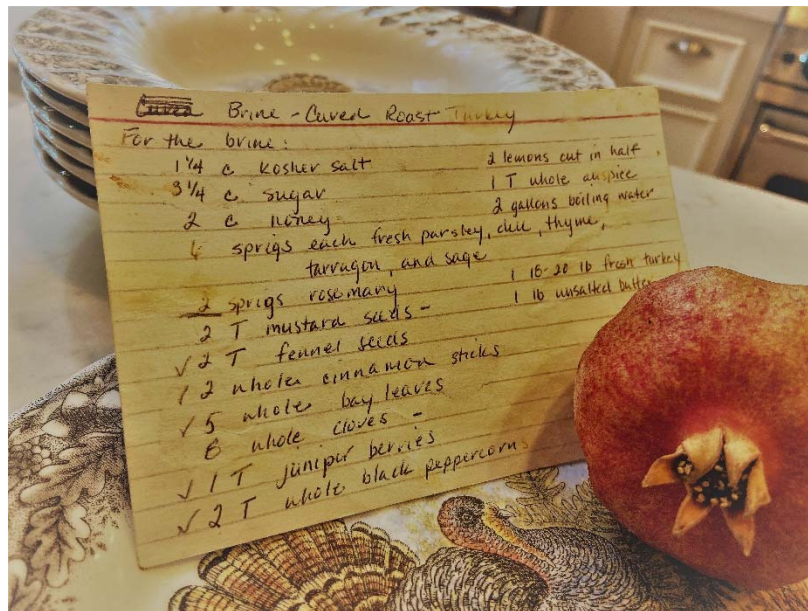 Brine - Cured Roast Turkey
For the brine:
1 1/4 c kosher salt
3 1/4 c sugar
2 c honey
sprigs each fresh parsley, dill, thyme,
tarragon, and sage
2 sprigs rosemary
2 T mustard seeds -
✓ 2 T fennel seeds
✓ 2 whole cinnamon sticks
✓ 5 whole bay leaves
6 whole cloves -
✓ 1 T juniper berries
✓ 2 T whole black peppercorns
2 lemons cut in half
1 T whole auspice
2 gallons boiling water
1 16-20 lb fresh turkey
1 lb unsalted butter